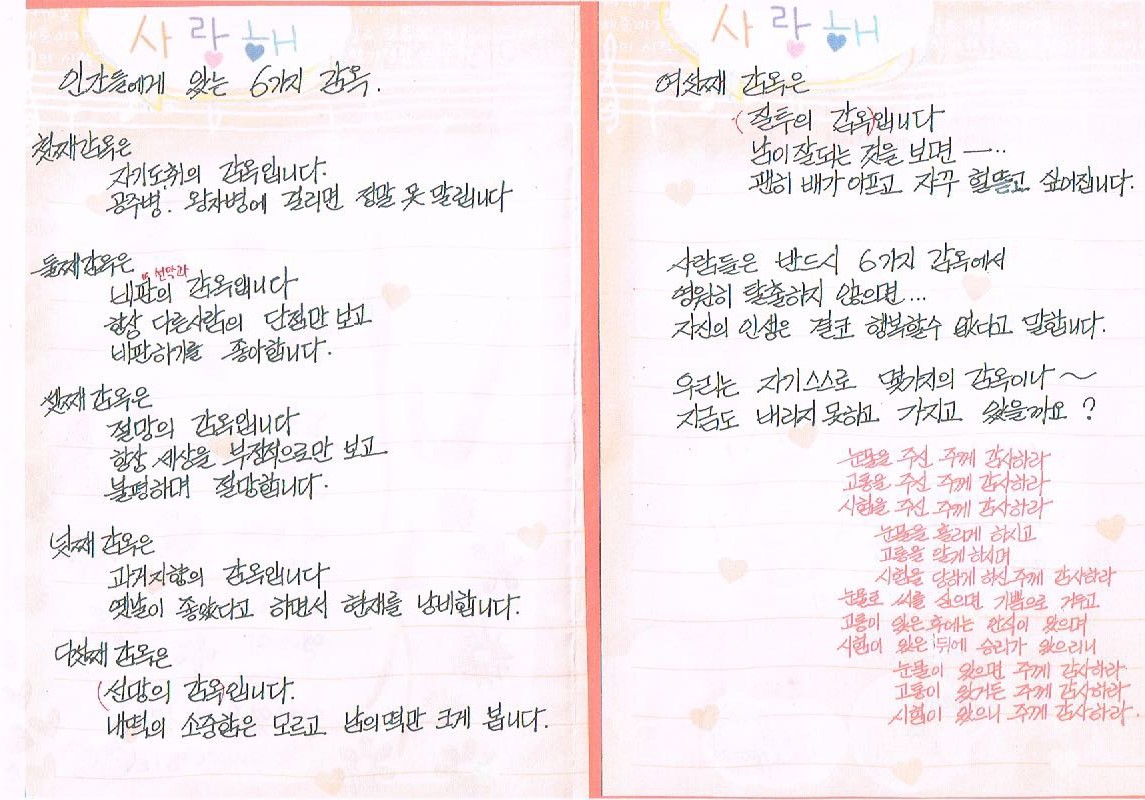 사랑해
인간들에게 있는 6가지 감옥.
첫째감옥은
자기도취의 감옥입니다.
공주병. 왕자병에 걸리면 정말 못 말립니다
둘째감옥은
선악과
비판의 감옥입니다
항상 다른사람의 단점만 보고
비판하기를 좋아합니다.
셋째감옥은
절망의 감옥입니다
항상 세상을 부정적으로만 보고
불평하며 절망합니다.
넷째 감옥은
과거지향의 감옥입니다
옛날이 좋았다고 하면서 현재를 낭비합니다.
다섯째 감옥은
(선망의 감옥입니다.
내떡의 소중함은 모르고 남의떡만 크게 봅니다.
사랑해
여섯째 감옥은
(질투의 감옥)입니다
남이잘되는 것을 보면 ㅡ..
괜히 배가 아프고 자꾸 헐뜯고 싶어집니다.
사람들은 반드시 6가지 감옥에서
영원히 탈출하지 않으면...
자신의 인생은 결코 행복할수 없다고 말합니다.
우리는 자기스스로 몇가지의 감옥이나 ~
지금도 내리지못하고 가지고 있을까요 ?
눈물을 주신 주께 감사하라
고통을 주신 주께 감사하라
시험을 주신 주께 감사하라
눈물을 흘리게 하시고
고통을 알게 하시며
시험을 당하게 하신 주께 감사하라
눈물로 씨를 심으면 기쁨으로 거두고
고통이 있은 후에는 안식이 있으며
시험이 있은 뒤에 승리가 있으리니
눈물이 있으면 주께 감사하라
고통이 있거든 주께 감사하라
시험이 있으니 주께 감사하라.